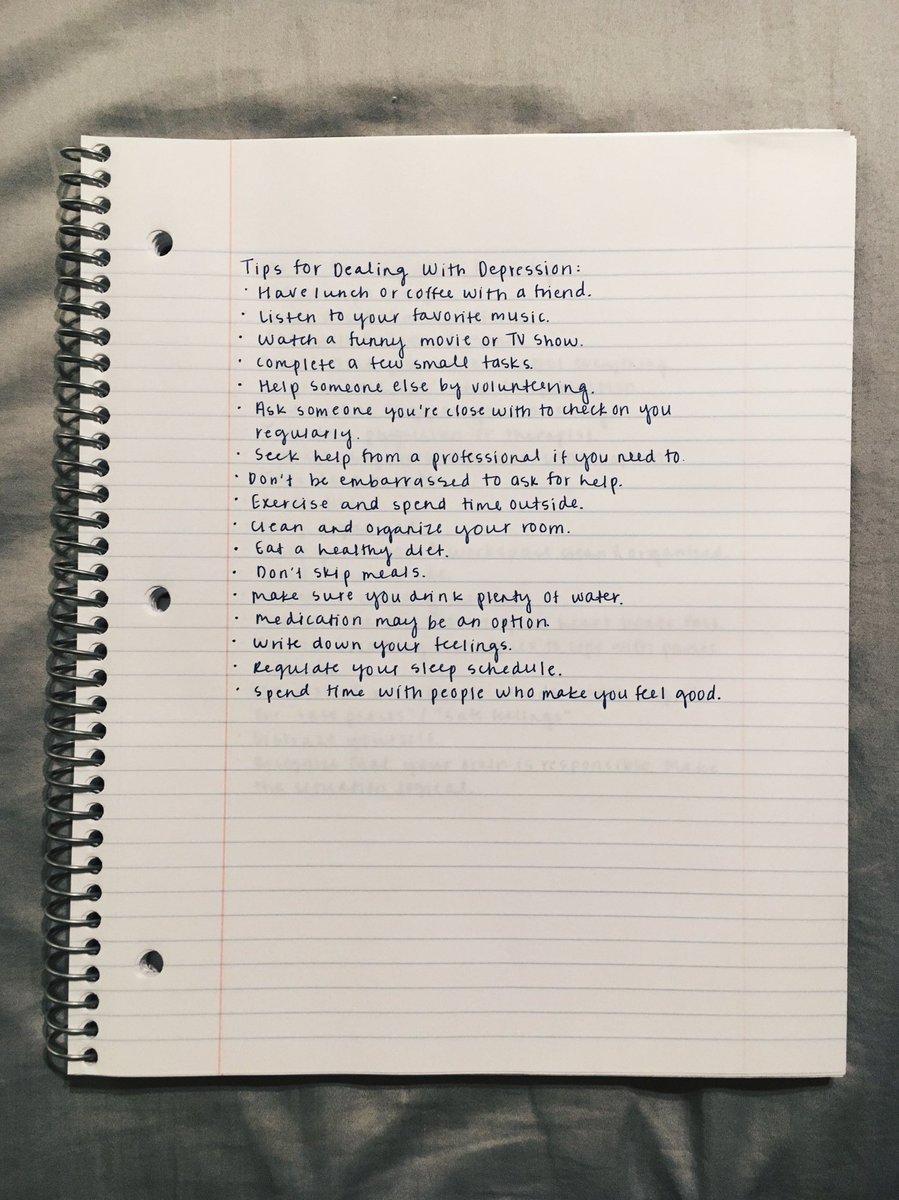 Tips for Dealing With Depression:
· Have lunch or coffee with a friend.
· Listen to your favorite music.
· Watch a funny movie or TV show.
· Complete a few small tasks.
· Help someone else by volunteering.
· Ask someone you're close with to check on you
regularly.
· Seek help from a professional if you need to.
· Don't be embarrassed to ask for help.
· Exercise and spend time outside.
· Clean and organize your room.
· Eat a healthy diet.
· Don't skip meals.
· Make sure you drink plenty of water.
· Medication may be an option.
· Write down your feelings.
· Regulate your sleep schedule.
· Spend time with people who make you feel good.